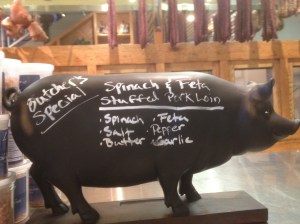 Butcher's
Special
Spinach & Feta
Stuffed Pork Loin
· Spinach · Feta
· Salt · Pepper
· Butter · Garlic